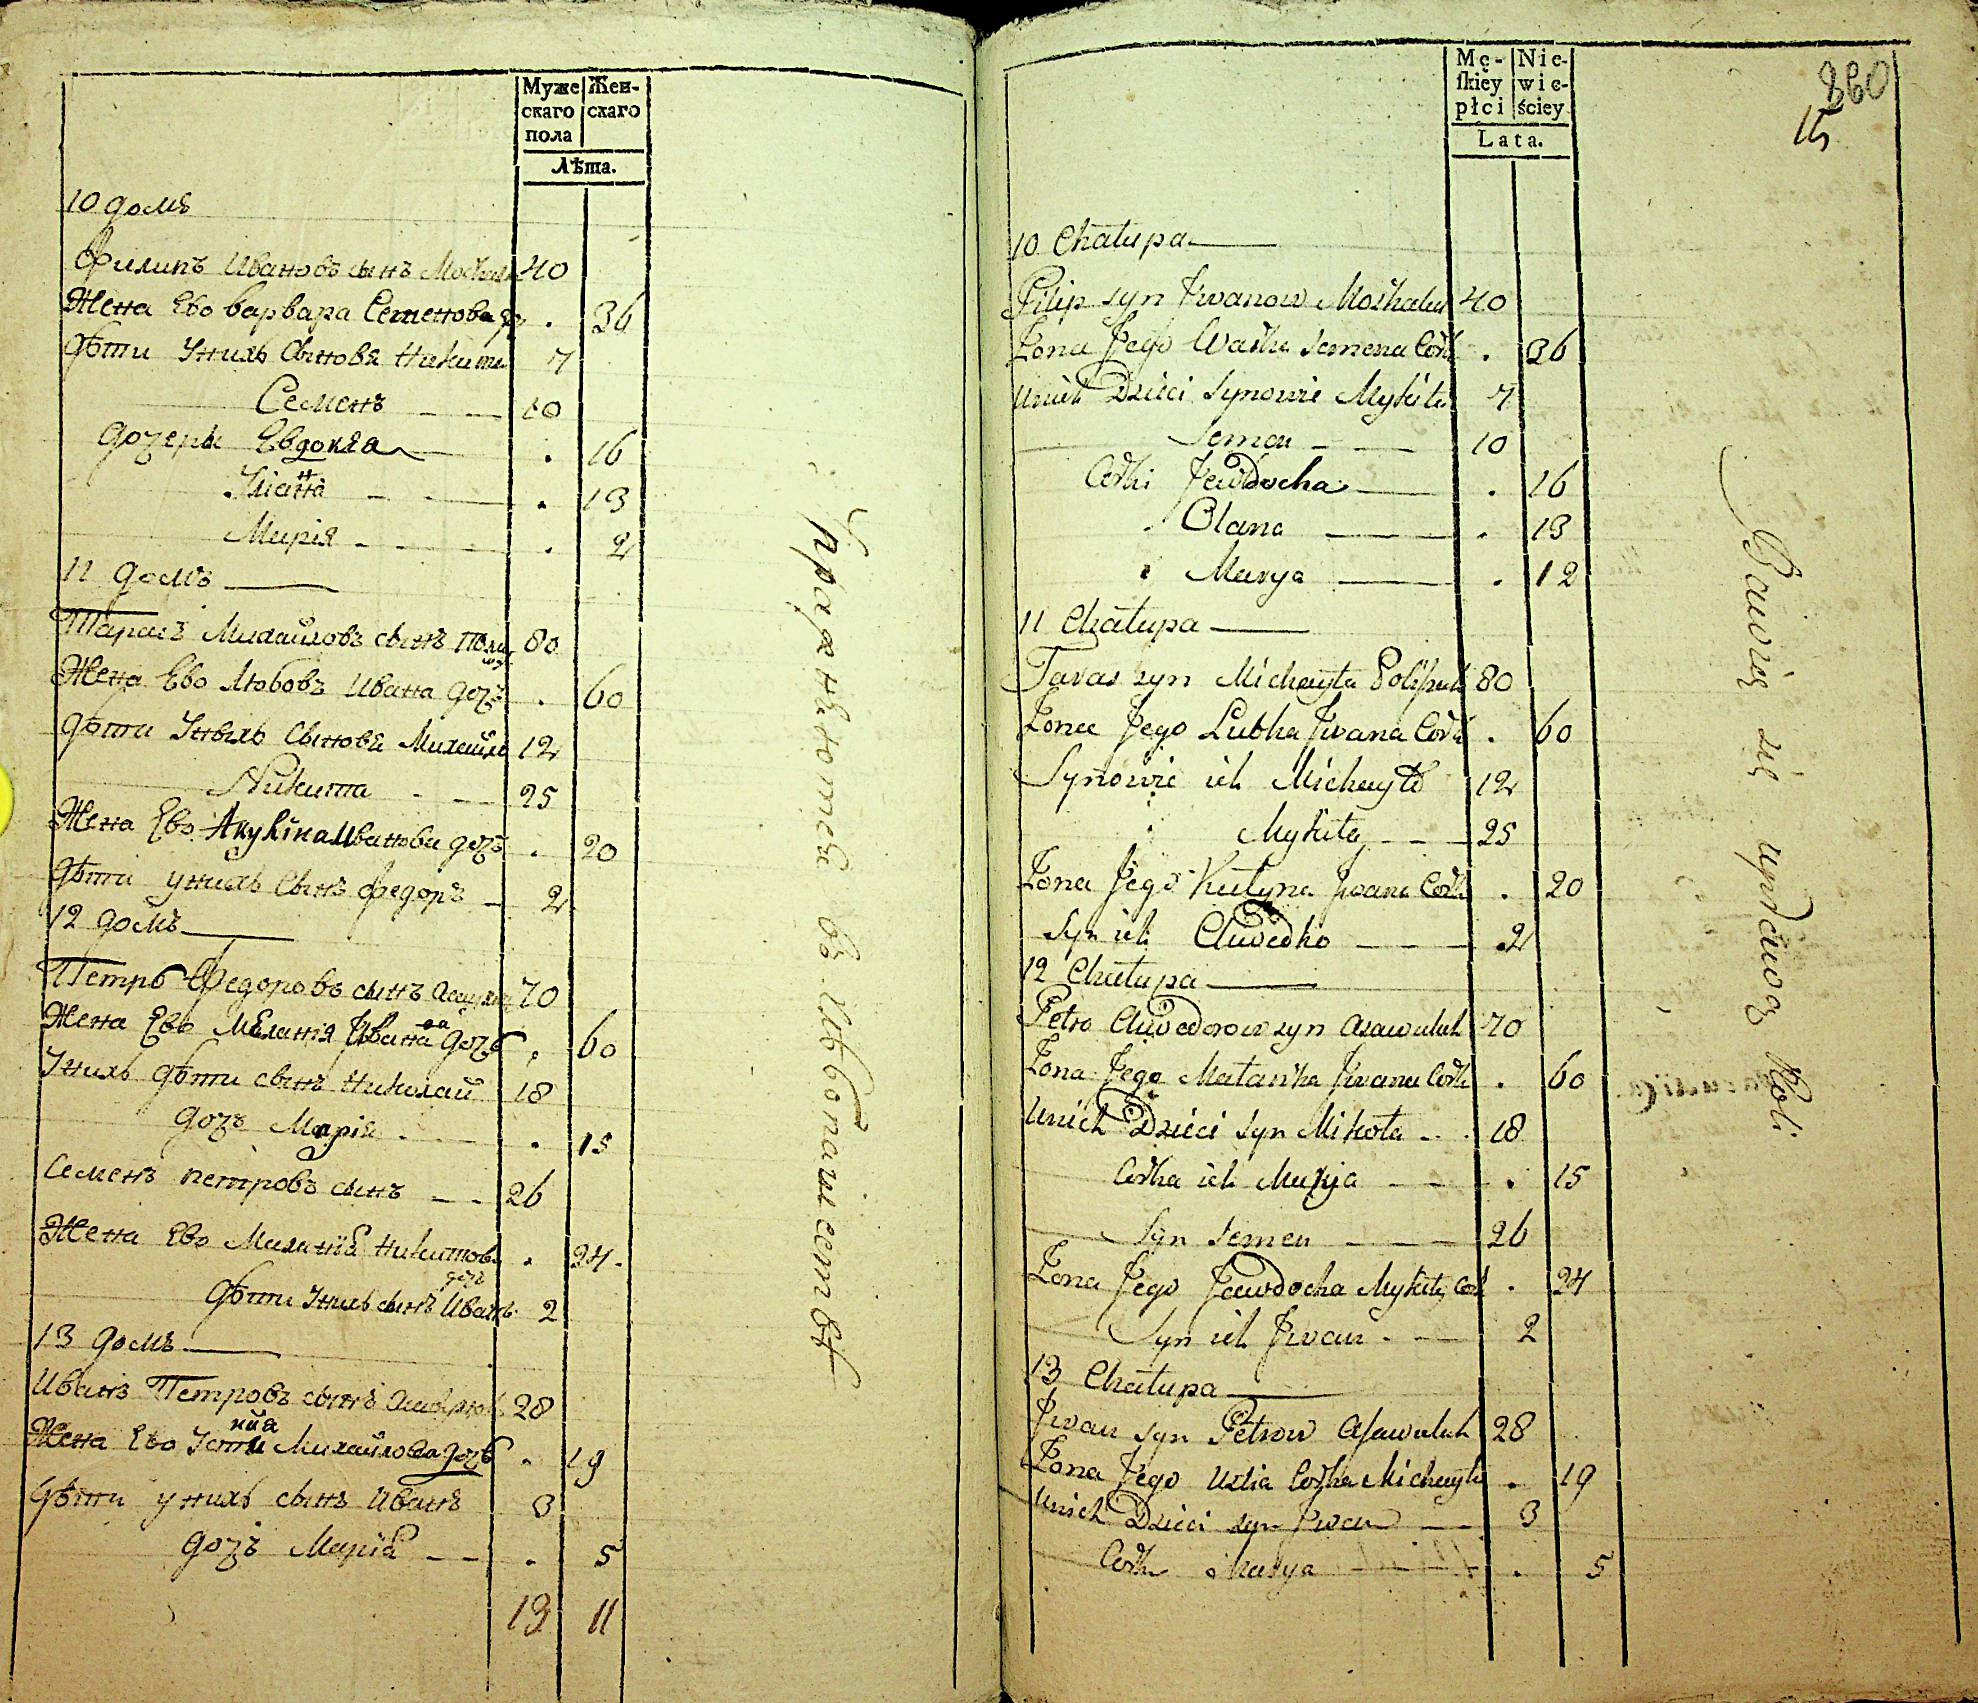 Муже
скаго
пола
Жен-
скаго
Лѣта.
10 домъ
Филипъ Ивановъ сынъ 40
Жена Ево варвара Семенова . 36
Дѣти Унихъ Сыновя Никита 7
Семенъ 10
дочеры Евдокяа . 16
Уліана . 13
Марія . 2
11 домъ
Тарасъ Михайловъ сынъ 80
Жена Ево Любовъ Ивана дочъ . 60
Дѣти Унихъ Сыновя Михайло 12
Никита 25
Жена Ево Акуліна Иванова дочъ . 20
Дѣти унихъ Сынъ Федоръ 2
12 домъ
Петръ Федоровъ сынъ 70
Жена Ево Меланія Иванова дочъ . 60
Унихъ Дѣти сынъ Николай 18
дочъ Марія . 15
Семенъ петровъ сынъ 26
Жена Ево Миланія Никитова дочъ . 24.
Дѣти Унихъ сынъ Иванъ 2
13 домъ
Иванъ Петровъ сынъ 28
Жена Ево Устинија Михайлова дочъ . 19
Дѣти унихъ сынъ Иванъ 3
дочъ Марія . 5
13 11
Упражняются въ хлѣбопашествѣ
Mę-
ſkiéy
płci
Nie-
wie-
ściey
Lata.
360
15
10 Chałupa
Filip syn Jwanow Moskaluk 40
Żona Jego Waska Semena Cork . 36
Unich Dzieci Synowie Mykita 7
Semen 10
Corki Jewdocha . 16
Olana . 13
Marya . 12
11 Chałupa
Taras syn Michayła 80
Żona Jego Lubka Jwana Cork . 60
Synowie ich Michayło 12
Mykita 25
Żona Jego Kulyna Jwana Cork . 20
Syn ich Chwedko 2
12 Chałupa
Petro Chwedorow syn Asawuluk 70
Żona Jego Małanka Jwana Cork . 60
Unich Dzieci Syn Mikoła 18
Corka ich Marya . 15
Syn Semen 26
Żona Jego Jewdocha Mykity Cork . 24
Syn ich Jwan 2
13 Chałupa
Jwan syn Petrow Asawuluk 28
Żona Jego Ustia Corka Michayła . 19
Unich Dzieci syn Jwan 3
Corka Marya . 5
Bawią się uprawą Roli